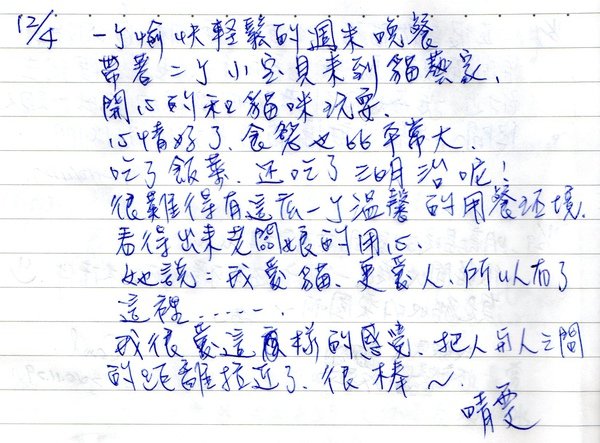 12/4 一个愉快輕鬆的週末晚餐
帶著二个小宝貝來到貓藝家,
開心的和貓咪玩耍.
心情好了.食慾也比平常大.
吃了飯菜.还吃了三明治呢!
很難得有這么一个溫馨的用餐环境.
看得出來老闆娘的用心.
她說:我愛貓.更愛人.所以有了
這裡......
我很愛這麼樣的感覺.把人與人之間
的距離拉近了.很棒~.
晴雯